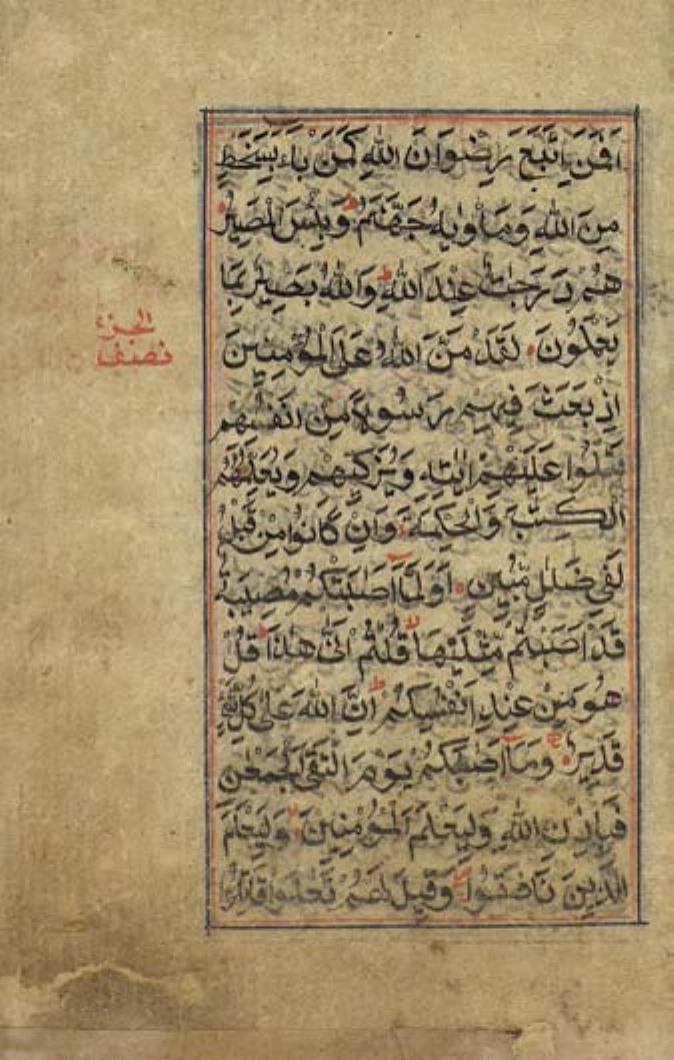 اَفَمَنِ اتَّبَعَ رِضْوَانَ اللّٰهِ كَمَنْ بَاءَ بِسَخَطٍ
مِنَ اللّٰهِ وَمَاْوٰيهُ جَهَنَّمُ وَبِئْسَ الْمَصِيْرُ
هُمْ دَرَجٰتٌ عِنْدَ اللّٰهِ وَاللّٰهُ بَصِيْرٌ بِمَا
يَعْمَلُوْنَ لَقَدْ مَنَّ اللّٰهُ عَلَى الْمُؤْمِنِيْنَ
اِذْ بَعَثَ فِيْهِمْ رَسُوْلًا مِنْ اَنْفُسِهِمْ
يَتْلُوْا عَلَيْهِمْ اٰيٰتِهٖ وَيُزَكِّيْهِمْ وَيُعَلِّمُهُمُ
الْكِتٰبَ وَالْحِكْمَةَ وَاِنْ كَانُوْا مِنْ قَبْلُ
لَفِيْ ضَلٰلٍ مُّبِيْنٍ اَوَلَمَّا اَصَابَتْكُمْ مُصِيْبَةٌ
قَدْ اَصَبْتُمْ مِّثْلَيْهَا قُلْتُمْ اَنّٰى هٰذَا قُلْ
هُوَ مِنْ عِنْدِ اَنْفُسِكُمْ اِنَّ اللّٰهَ عَلٰى كُلِّ شَيْءٍ
قَدِيْرٌ وَمَا اَصَابَكُمْ يَوْمَ الْتَقَى الْجَمْعٰنِ
فَبِاِذْنِ اللّٰهِ وَلِيَعْلَمَ الْمُؤْمِنِيْنَ وَلِيَعْلَمَ
الَّذِيْنَ نَافَقُوْا وَقِيْلَ لَهُمْ تَعَالَوْا قَاتِلُوْا
الجزء
نصف